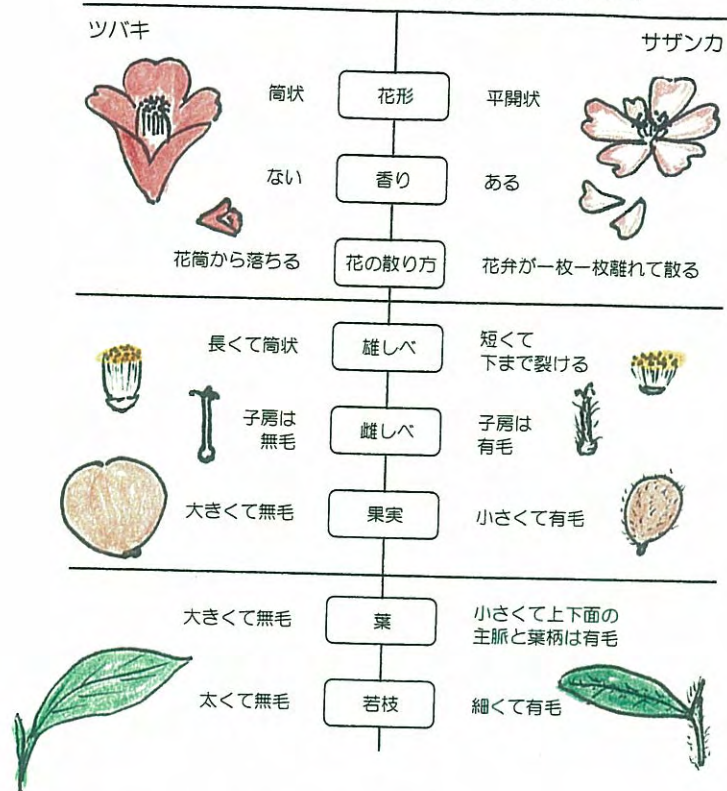 ツバキ
サザンカ
筒状
花形
平開状
ない
香り
ある
花筒から落ちる
花の散り方
花弁が一枚一枚離れて散る
長くて筒状
雄しべ
短くて
下まで裂ける
子房は
無毛
雌しべ
子房は
有毛
大きくて無毛
果実
小さくて有毛
大きくて無毛
葉
小さくて上下面の
主脈と葉柄は有毛
太くて無毛
若枝
細くて有毛